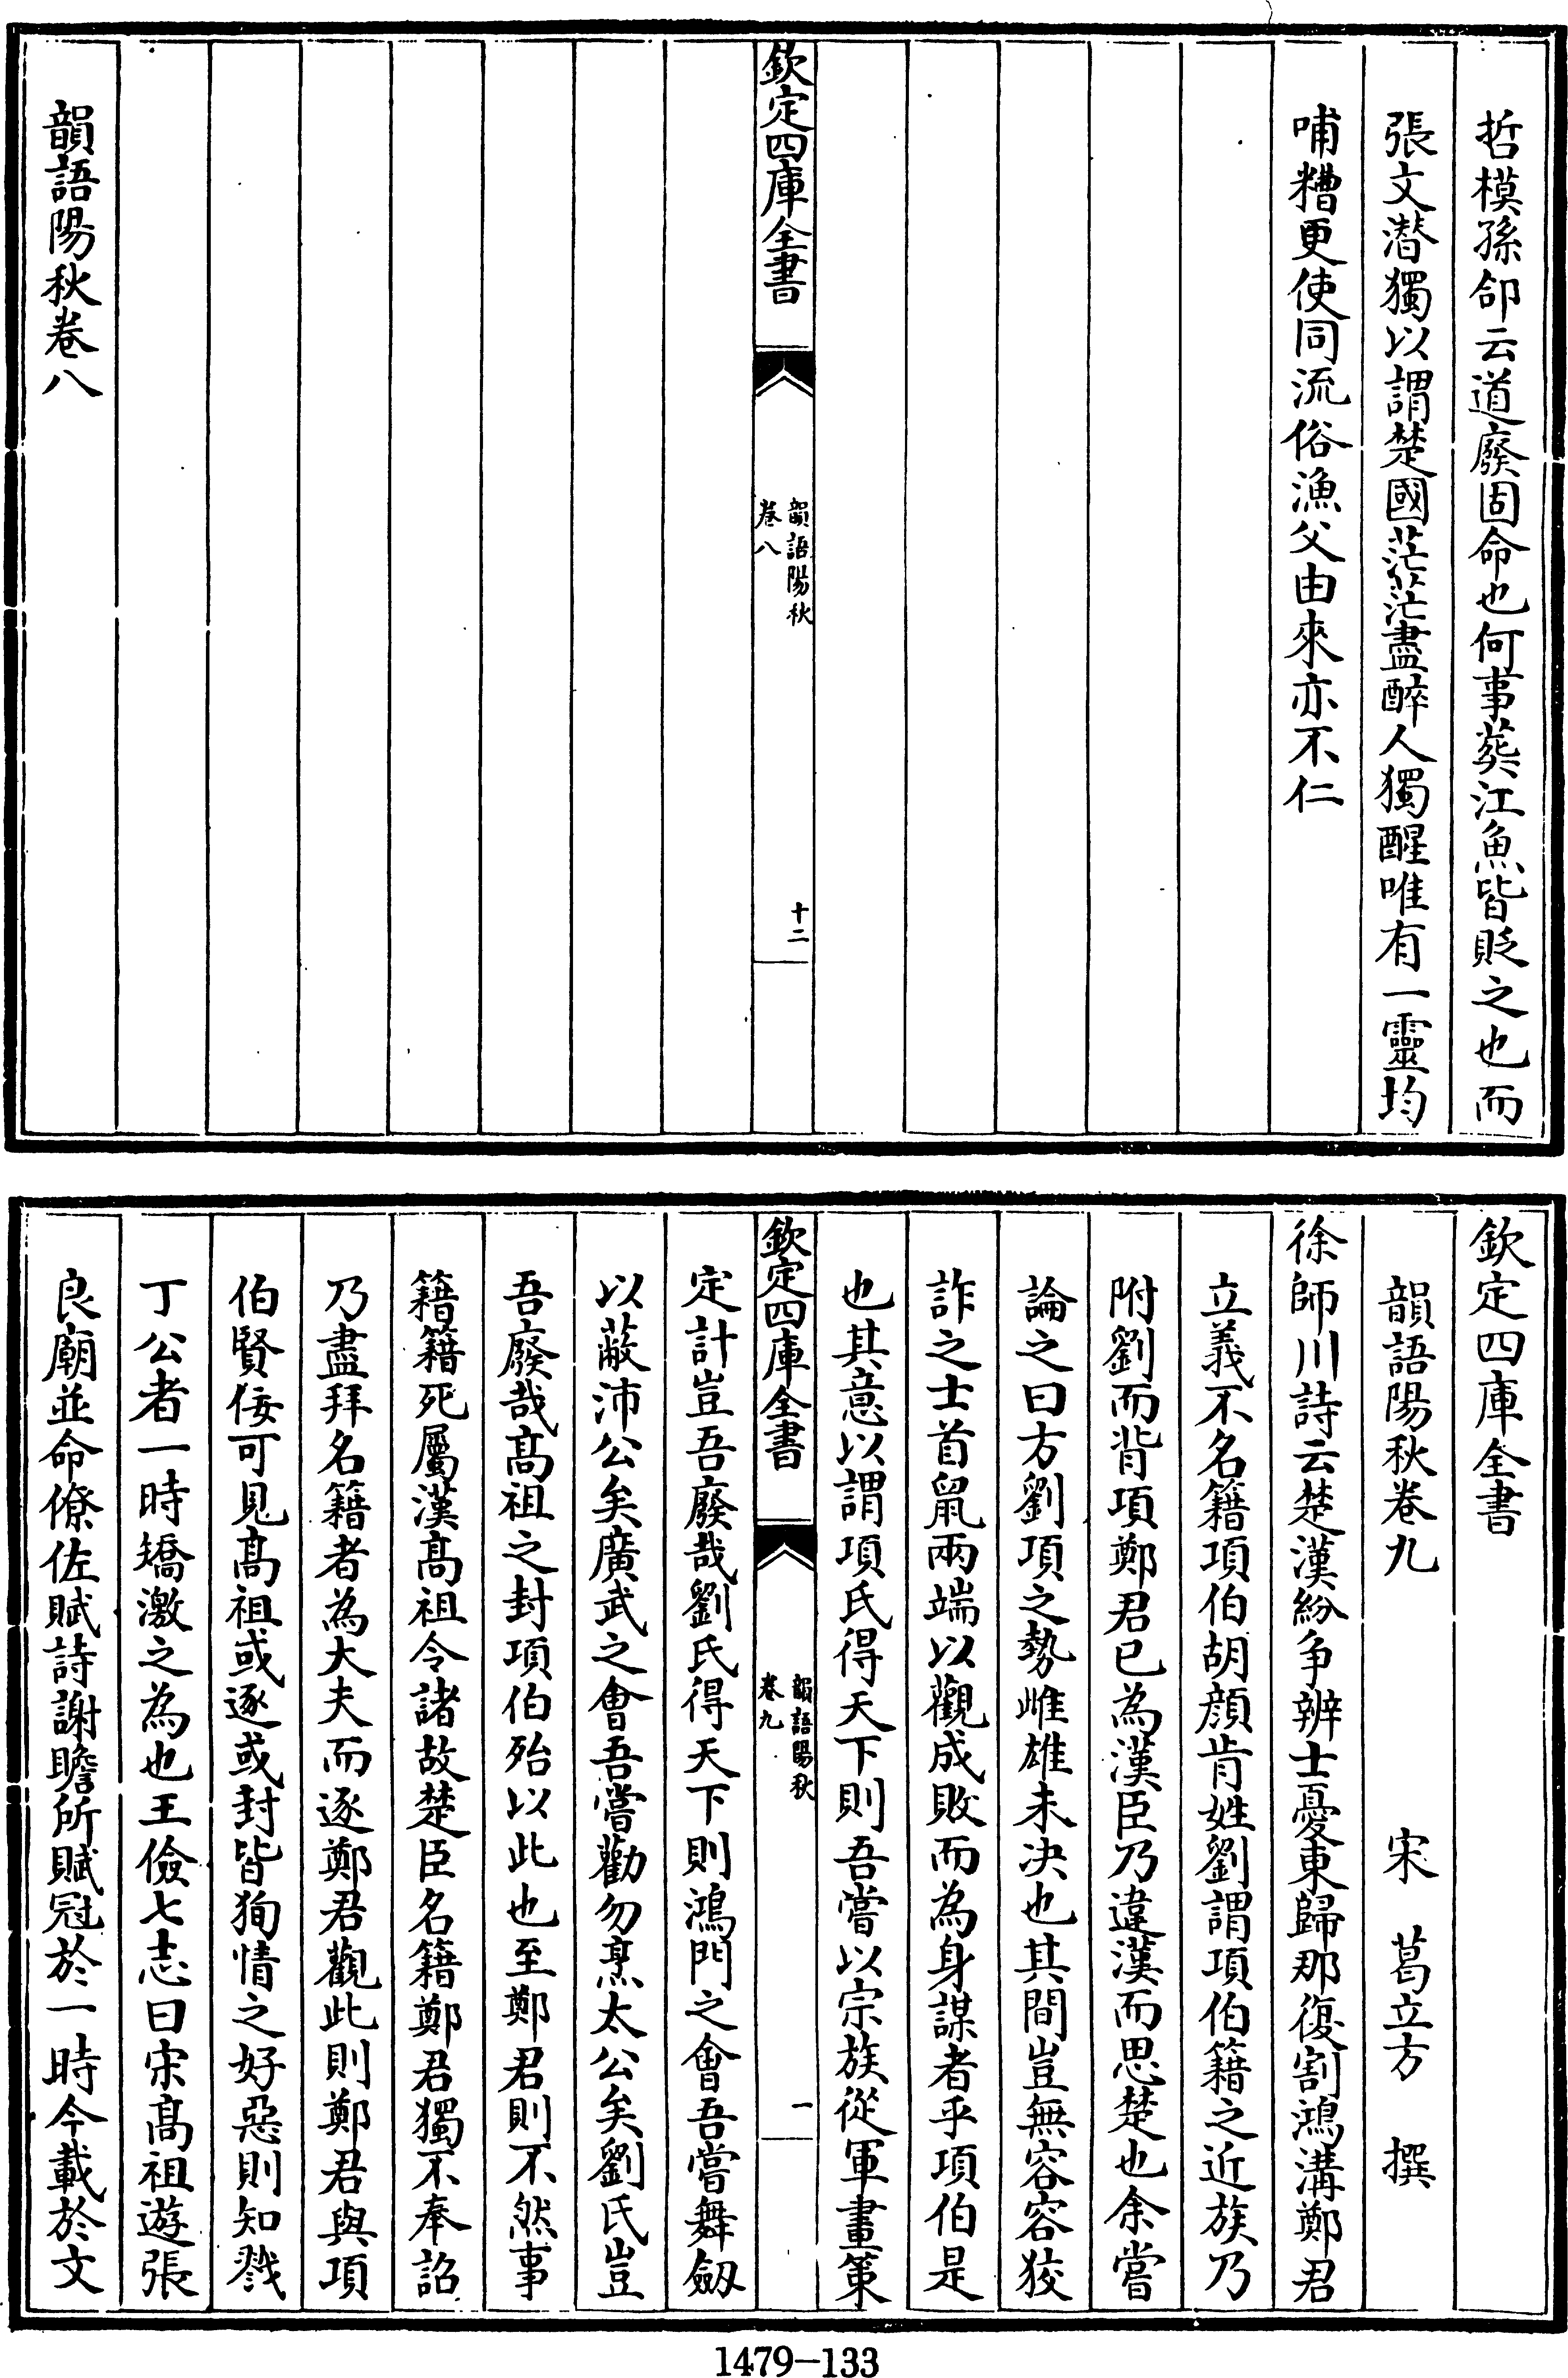 哲模孫郃云道廢固命也何事葬江魚皆貶之也而
張文潛獨以謂楚國茫茫盡醉人獨醒唯有一靈均
哺糟更使同流俗漁父由來亦不仁
欽定四庫全書
韻語陽秋
卷八
十二
韻語陽秋卷八
欽定四庫全書
韻語陽秋卷九
宋 葛立方 撰
徐師川詩云楚漢紛争辨士憂東歸那復割鴻溝鄭君
立義不名籍項伯胡顔肯姓劉謂項伯籍之近族乃
附劉而背項鄭君已為漢臣乃違漢而思楚也余嘗
論之曰方劉項之勢雌雄未决也其間豈無容容狡
詐之士首鼠兩端以觀成敗而為身謀者乎項伯是
也其意以謂項氏得天下則吾嘗以宗族從軍畫策
欽定四庫全書
韻語陽秋
卷九
一
定計豈吾廢哉劉氏得天下則鴻門之會吾嘗舞劔
以蔽沛公矣廣武之會吾嘗勸勿烹太公矣劉氏豈
吾廢哉髙祖之封項伯殆以此也至鄭君則不然事
籍籍死屬漢髙祖令諸故楚臣名籍鄭君獨不奉詔
乃盡拜名籍者為大夫而逐鄭君觀此則鄭君與項
伯賢佞可見髙祖或逐或封皆狥情之好惡則知戮
丁公者一時矯激之為也王儉七志曰宋髙祖遊張
良廟並命僚佐賦詩謝瞻所賦冠於一時今載於文
1479-133